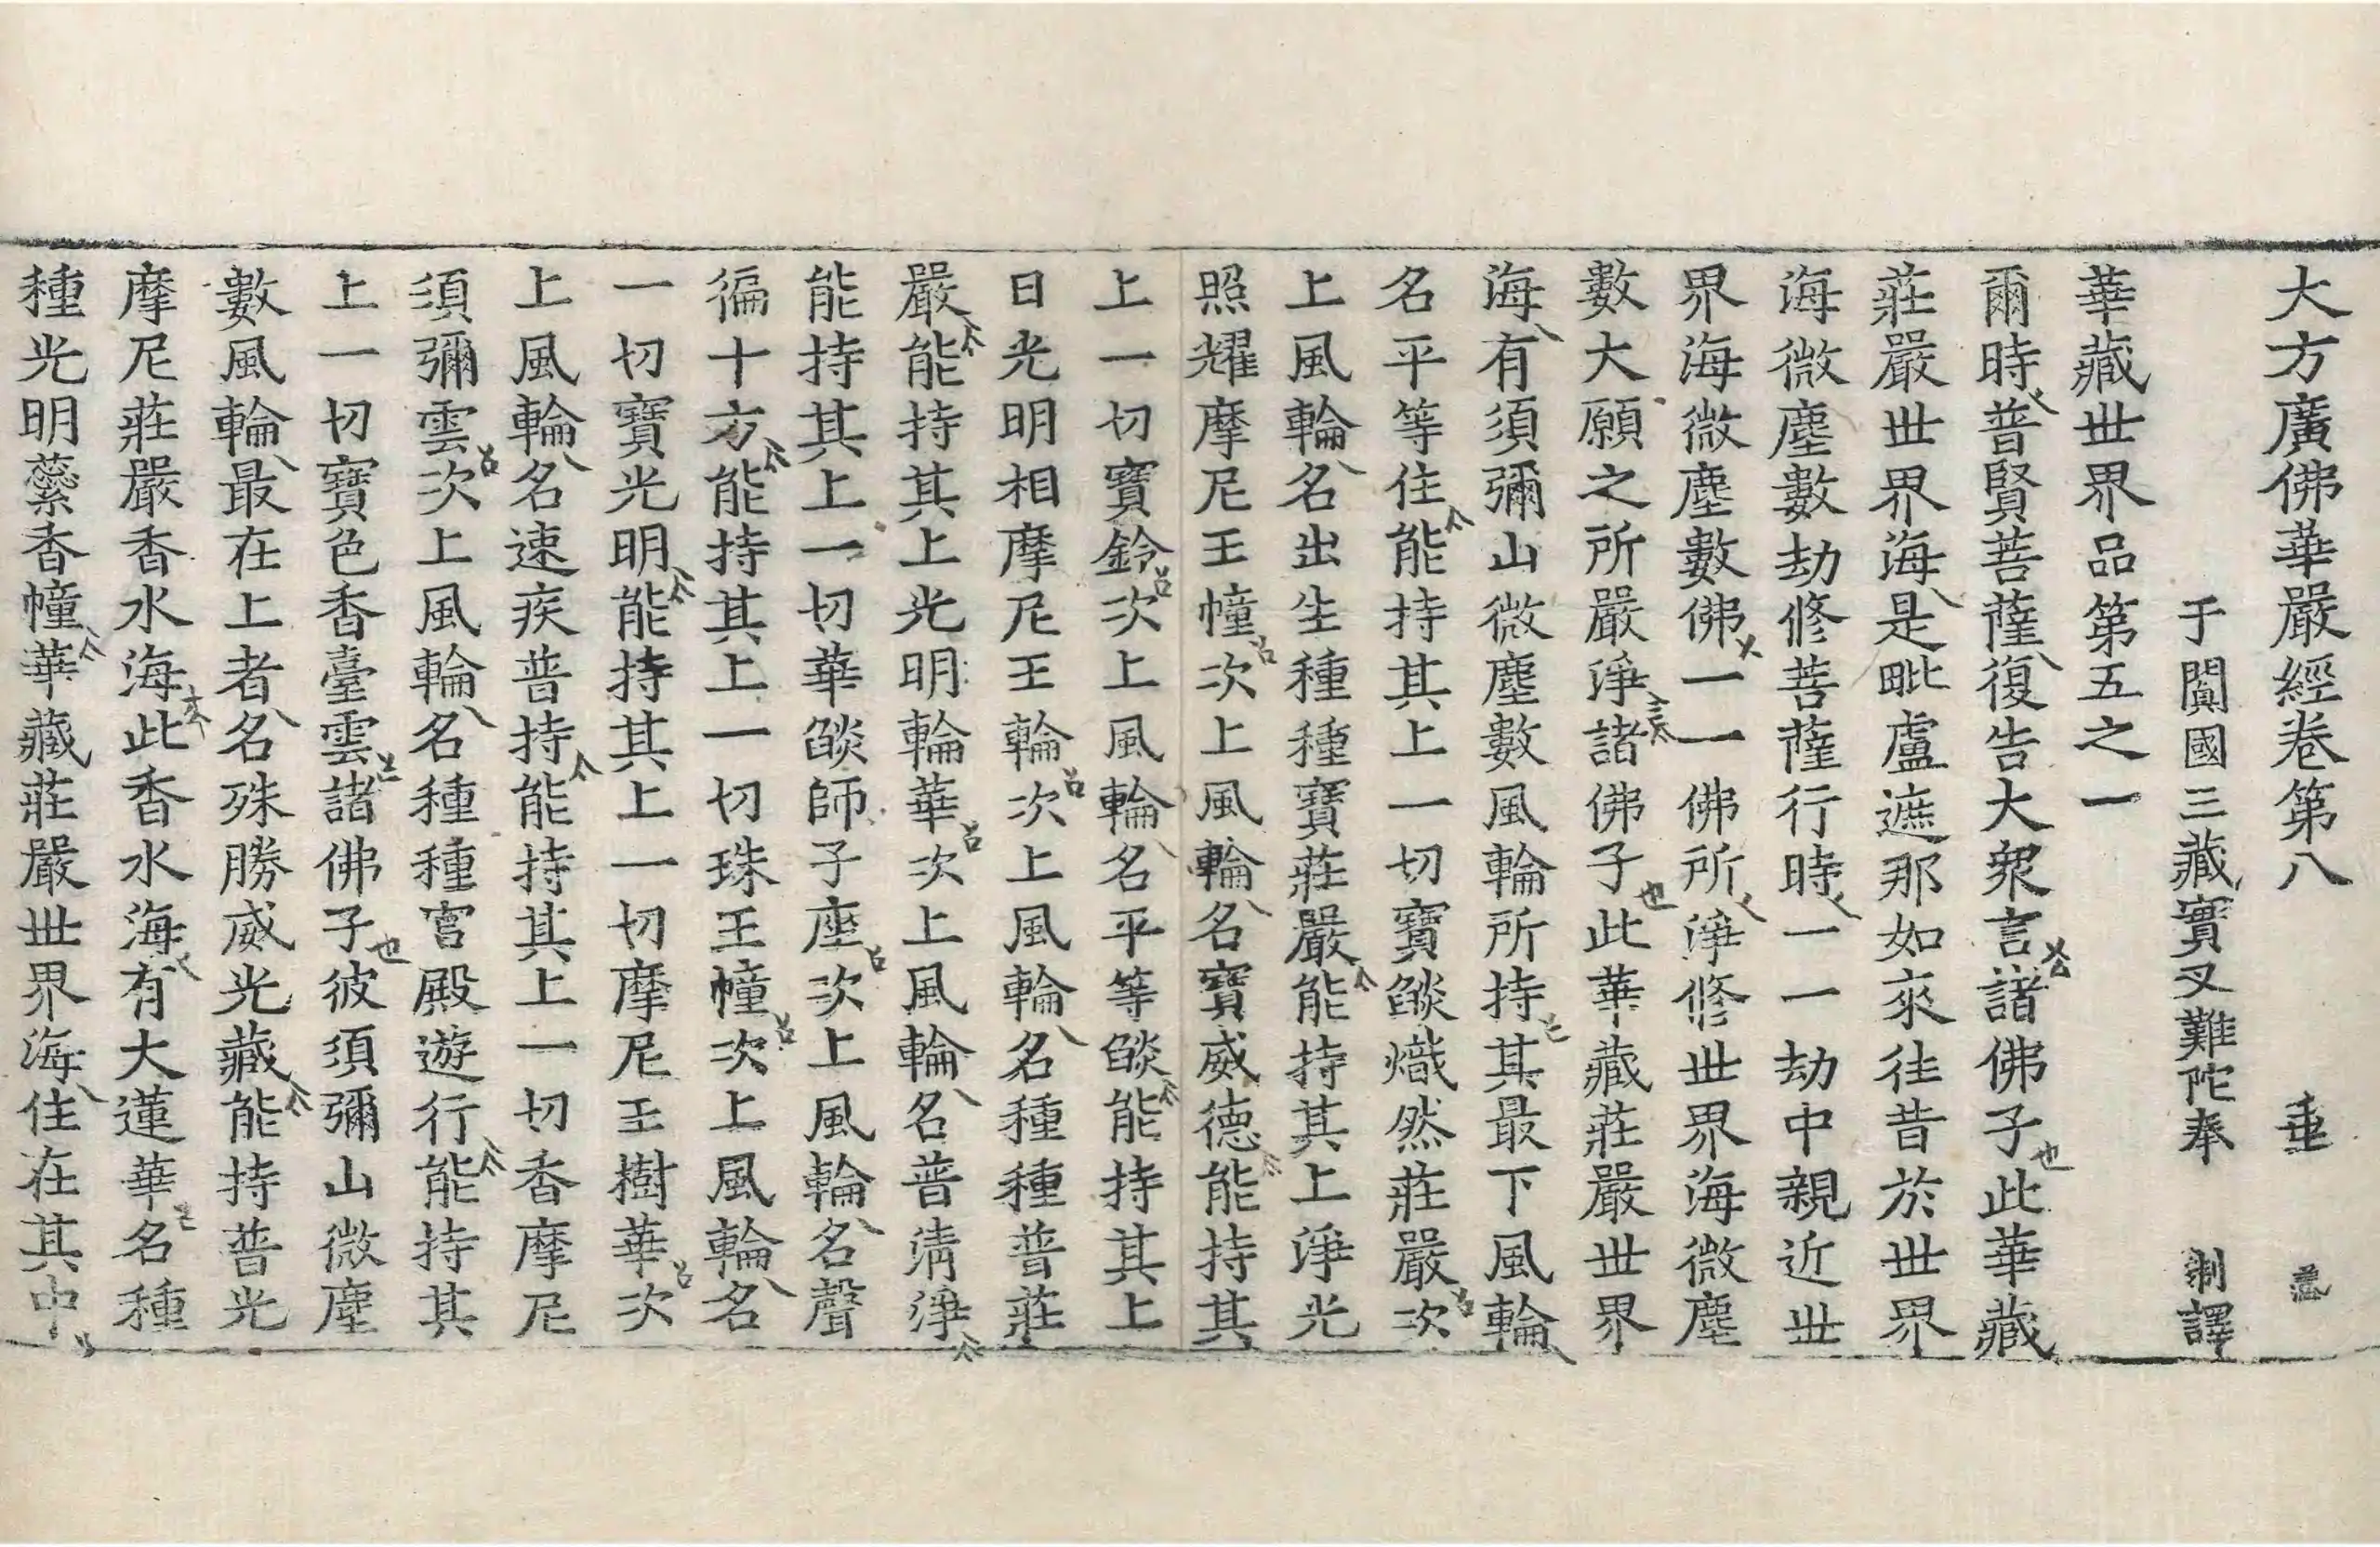 大方廣佛華嚴經卷第八 垂
于闐國三藏實叉難陀奉 制譯
華藏世界品第五之一
爾時普賢菩薩復告大衆言諸佛子此華藏
莊嚴世界海是毗盧遮那如來往昔於世界
海微塵數劫修菩薩行時一一劫中親近世
界海微塵數佛一一佛所淨修世界海微塵
數大願之所嚴淨諸佛子此華藏莊嚴世界
海有須彌山微塵數風輪所持其最下風輪
名平等住能持其上一切寶燄熾然莊嚴次
上風輪名出生種種寶莊嚴能持其上淨光
照耀摩尼王幢次上風輪名寶威德能持其
上一切寶鈴次上風輪名平等燄能持其上
日光明相摩尼王輪次上風輪名種種普莊
嚴能持其上光明輪華次上風輪名普清淨
能持其上一切華燄師子座次上風輪名聲
徧十方能持其上一切珠王幢次上風輪名
一切寶光明能持其上一切摩尼王樹華次
上風輪名速疾普持能持其上一切香摩尼
須彌雲次上風輪名種種宮殿遊行能持其
上一切寶色香臺雲諸佛子彼須彌山微塵
數風輪最在上者名殊勝威光藏能持普光
摩尼莊嚴香水海此香水海有大蓮華名種
種光明蘂香幢華藏莊嚴世界海住在其中